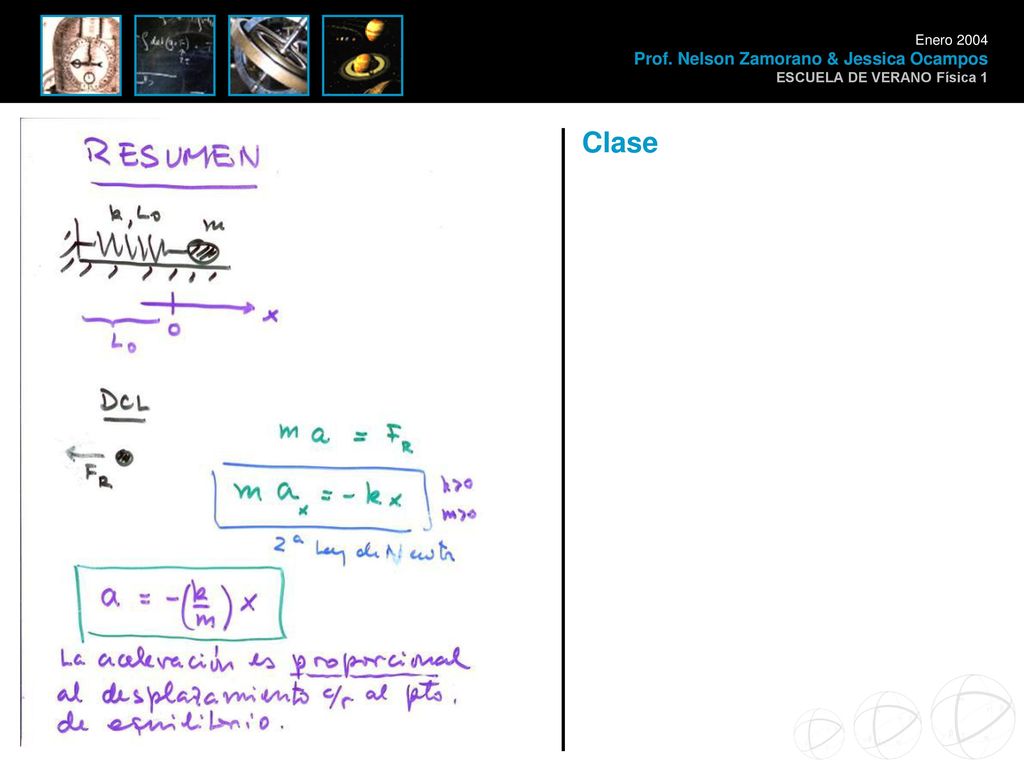 Enero 2004
Prof. Nelson Zamorano & Jessica Ocampos
ESCUELA DE VERANO Física 1
Clase
RESUMEN
k, L₀
m
x
0
L₀
DCL
F_R
m a = F_R
m a_x = - k x
k>0
m>0
2ª Ley de Newton
a = -(k/m) x
La aceleración es proporcional
al desplazamiento c/r al pto.
de equilibrio.